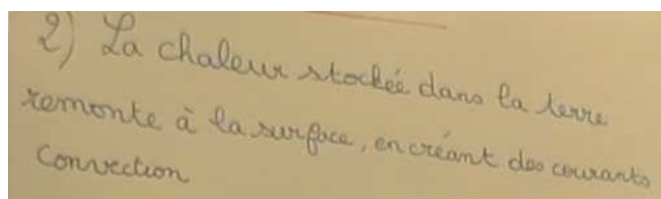 2) La chaleur stockée dans la terre
remonte à la surface, en créant des courants
Convection